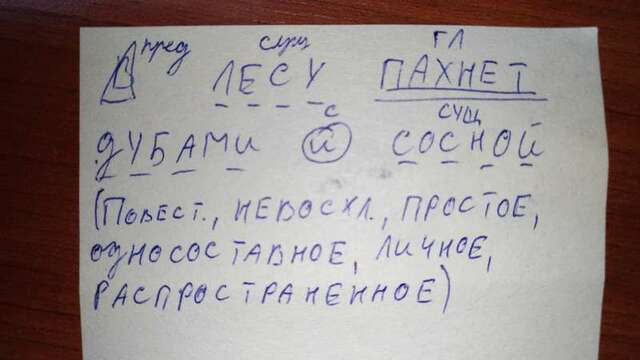 пред сущ гл
В ЛЕСУ ПАХНЕТ
с сущ
ДУБАМИ и СОСНОЙ
(ПОВЕСТ., НЕВОСКЛ., ПРОСТОЕ,
ОДНОСОСТАВНОЕ, ЛИЧНОЕ,
РАСПРОСТРАНЕННОЕ)